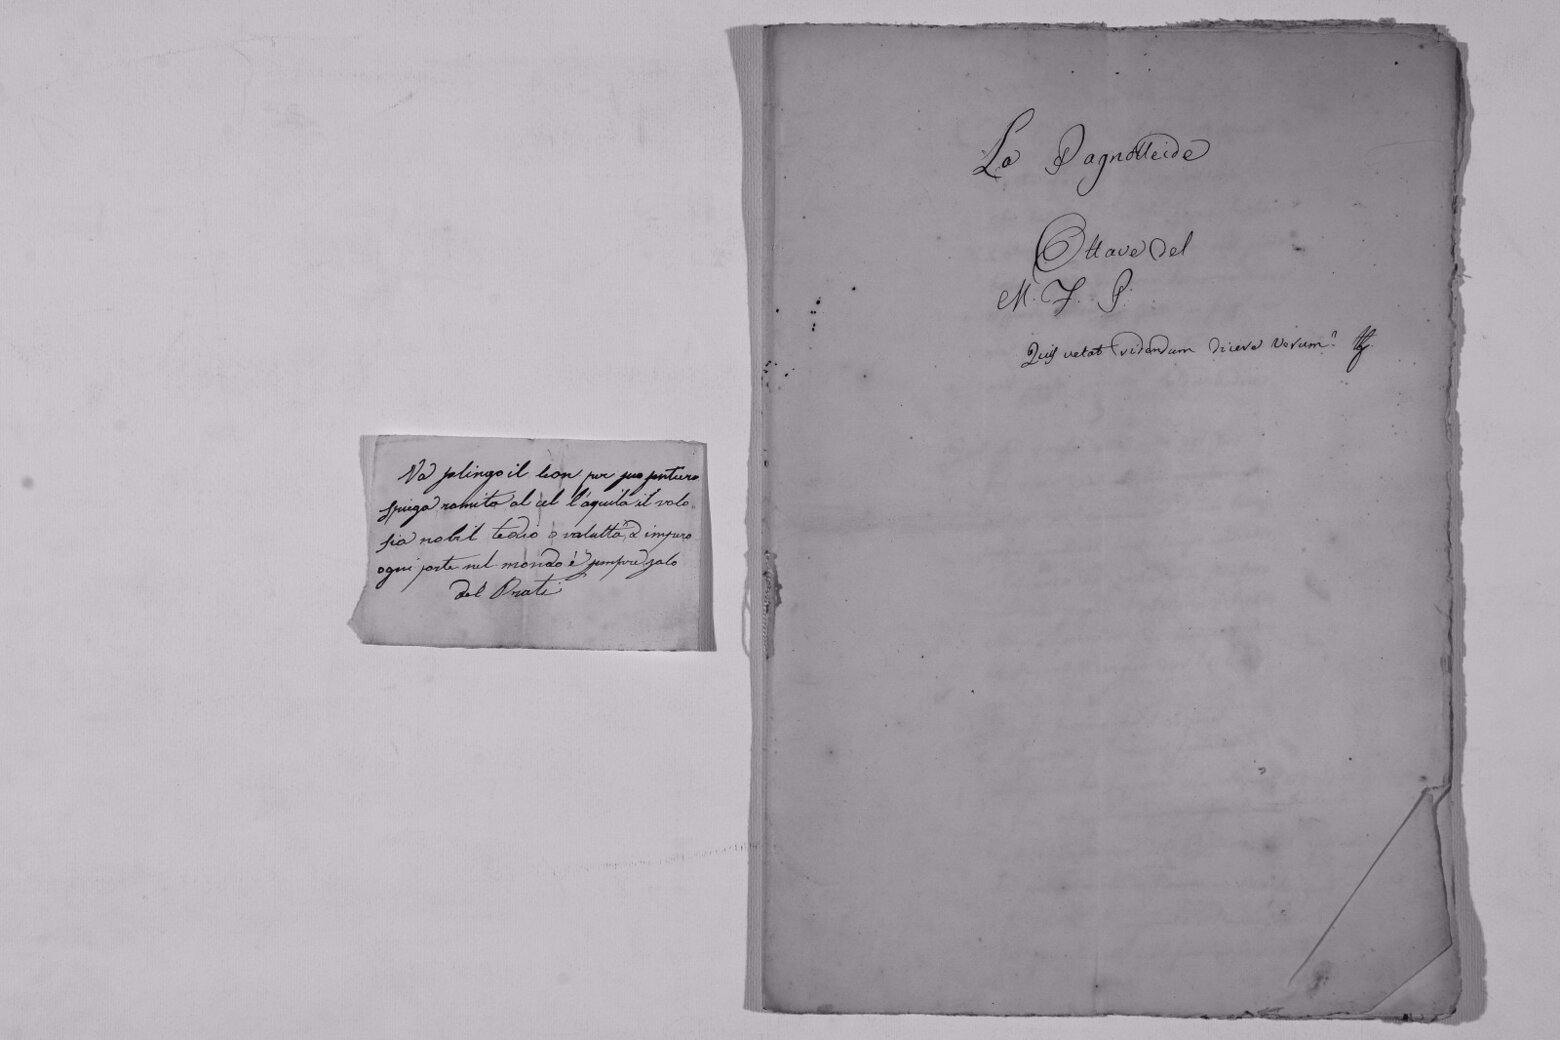 Va solingo il leon per suo sentiero
spiega romito al ciel l'aquila il volo
sia nobil tedio o valuttà d'impero
ogni forte nel mondo è sempre solo
del Prati
La Pagnotteide
Ottave del
M. F. P.
Quis vetat ridendum dicere verum?